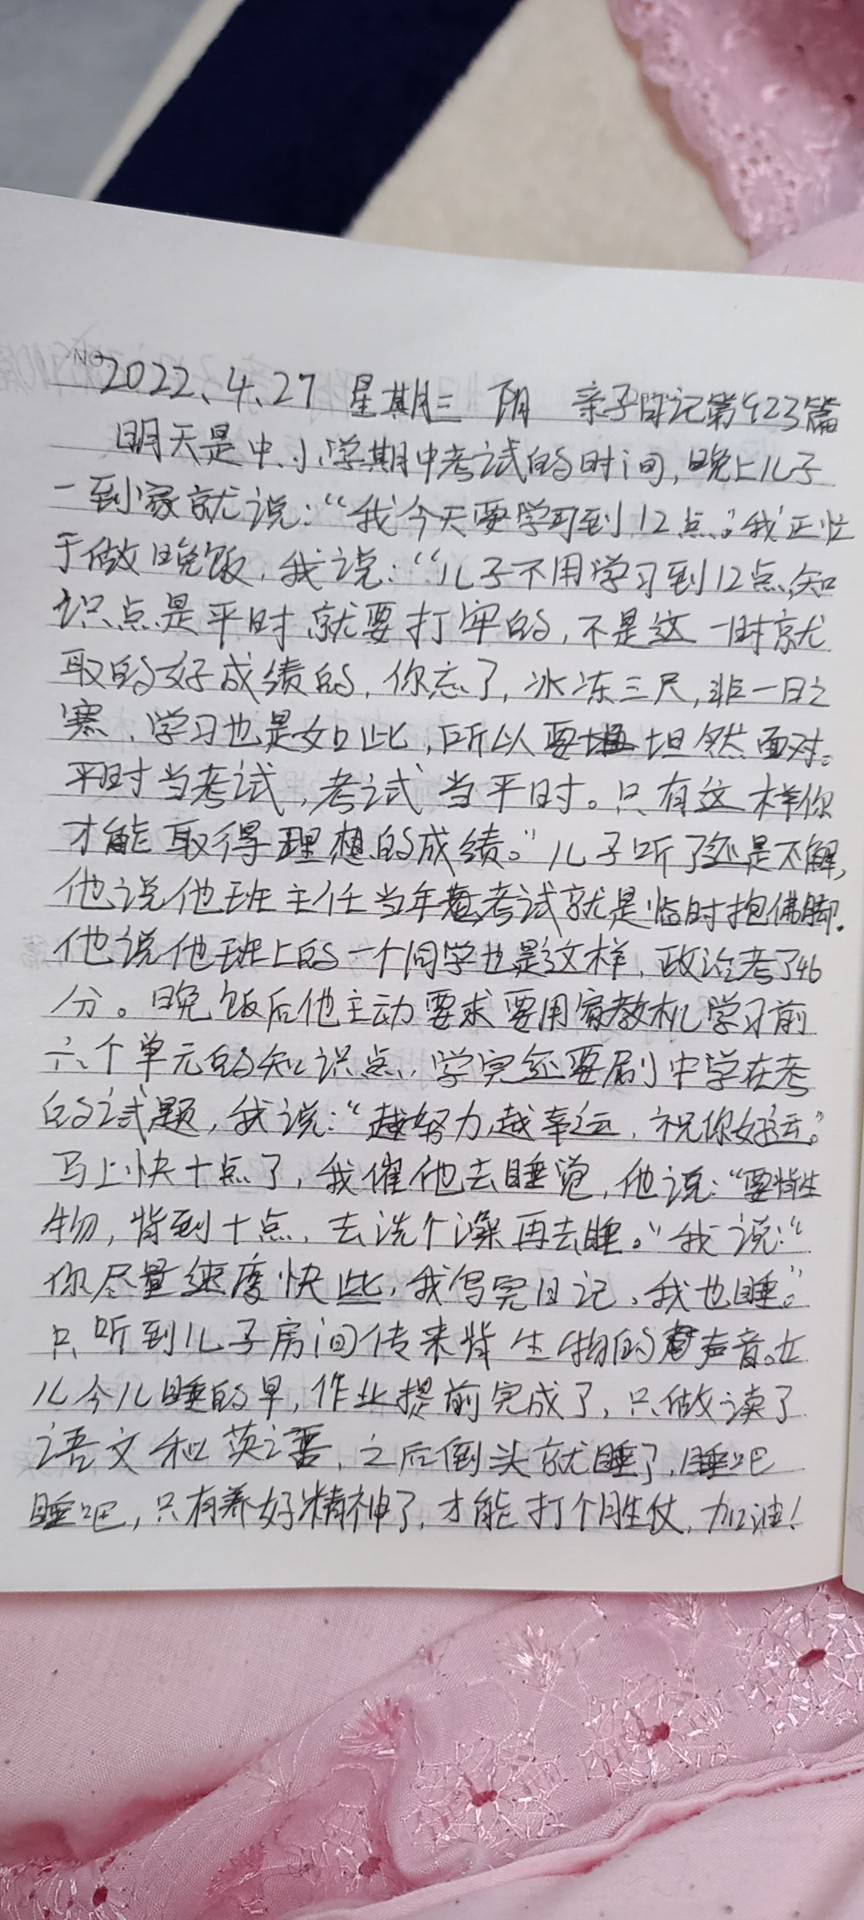 No
2022.4.27 星期三 阴 亲子日记第423篇
明天是中、小学期中考试的时间,晚上儿子
一到家就说:“我今天要学习到12点。”我正忙
于做晚饭,我说:“儿子不用学习到12点,知
识点是平时就要打牢的,不是这一时就
取的好成绩的,你忘了,冰冻三尺,非一日之
寒,学习也是如此,所以要坦然面对。
平时当考试,考试当平时。只有这样你
才能取得理想的成绩。”儿子听了还是不解,
他说他班主任当年考试就是临时抱佛脚.
他说他班上的一个同学也是这样,政治考了46
分。晚饭后他主动要求要用家教机学习前
六个单元的知识点,学完还要刷中学在考
的试题,我说:“越努力,越幸运,祝你好运。”
马上快十点了,我催他去睡觉,他说:“要背生
物,背到十点,去洗个澡再去睡。”我说:“
你尽量速度快些,我写完日记,我也睡。”
只听到儿子房间传来背生物的声音。女
儿今儿睡的早,作业提前完成了,只做读了
语文和英语,之后倒头就睡了,睡吧
睡吧,只有养好精神了,才能打个胜仗,加油!